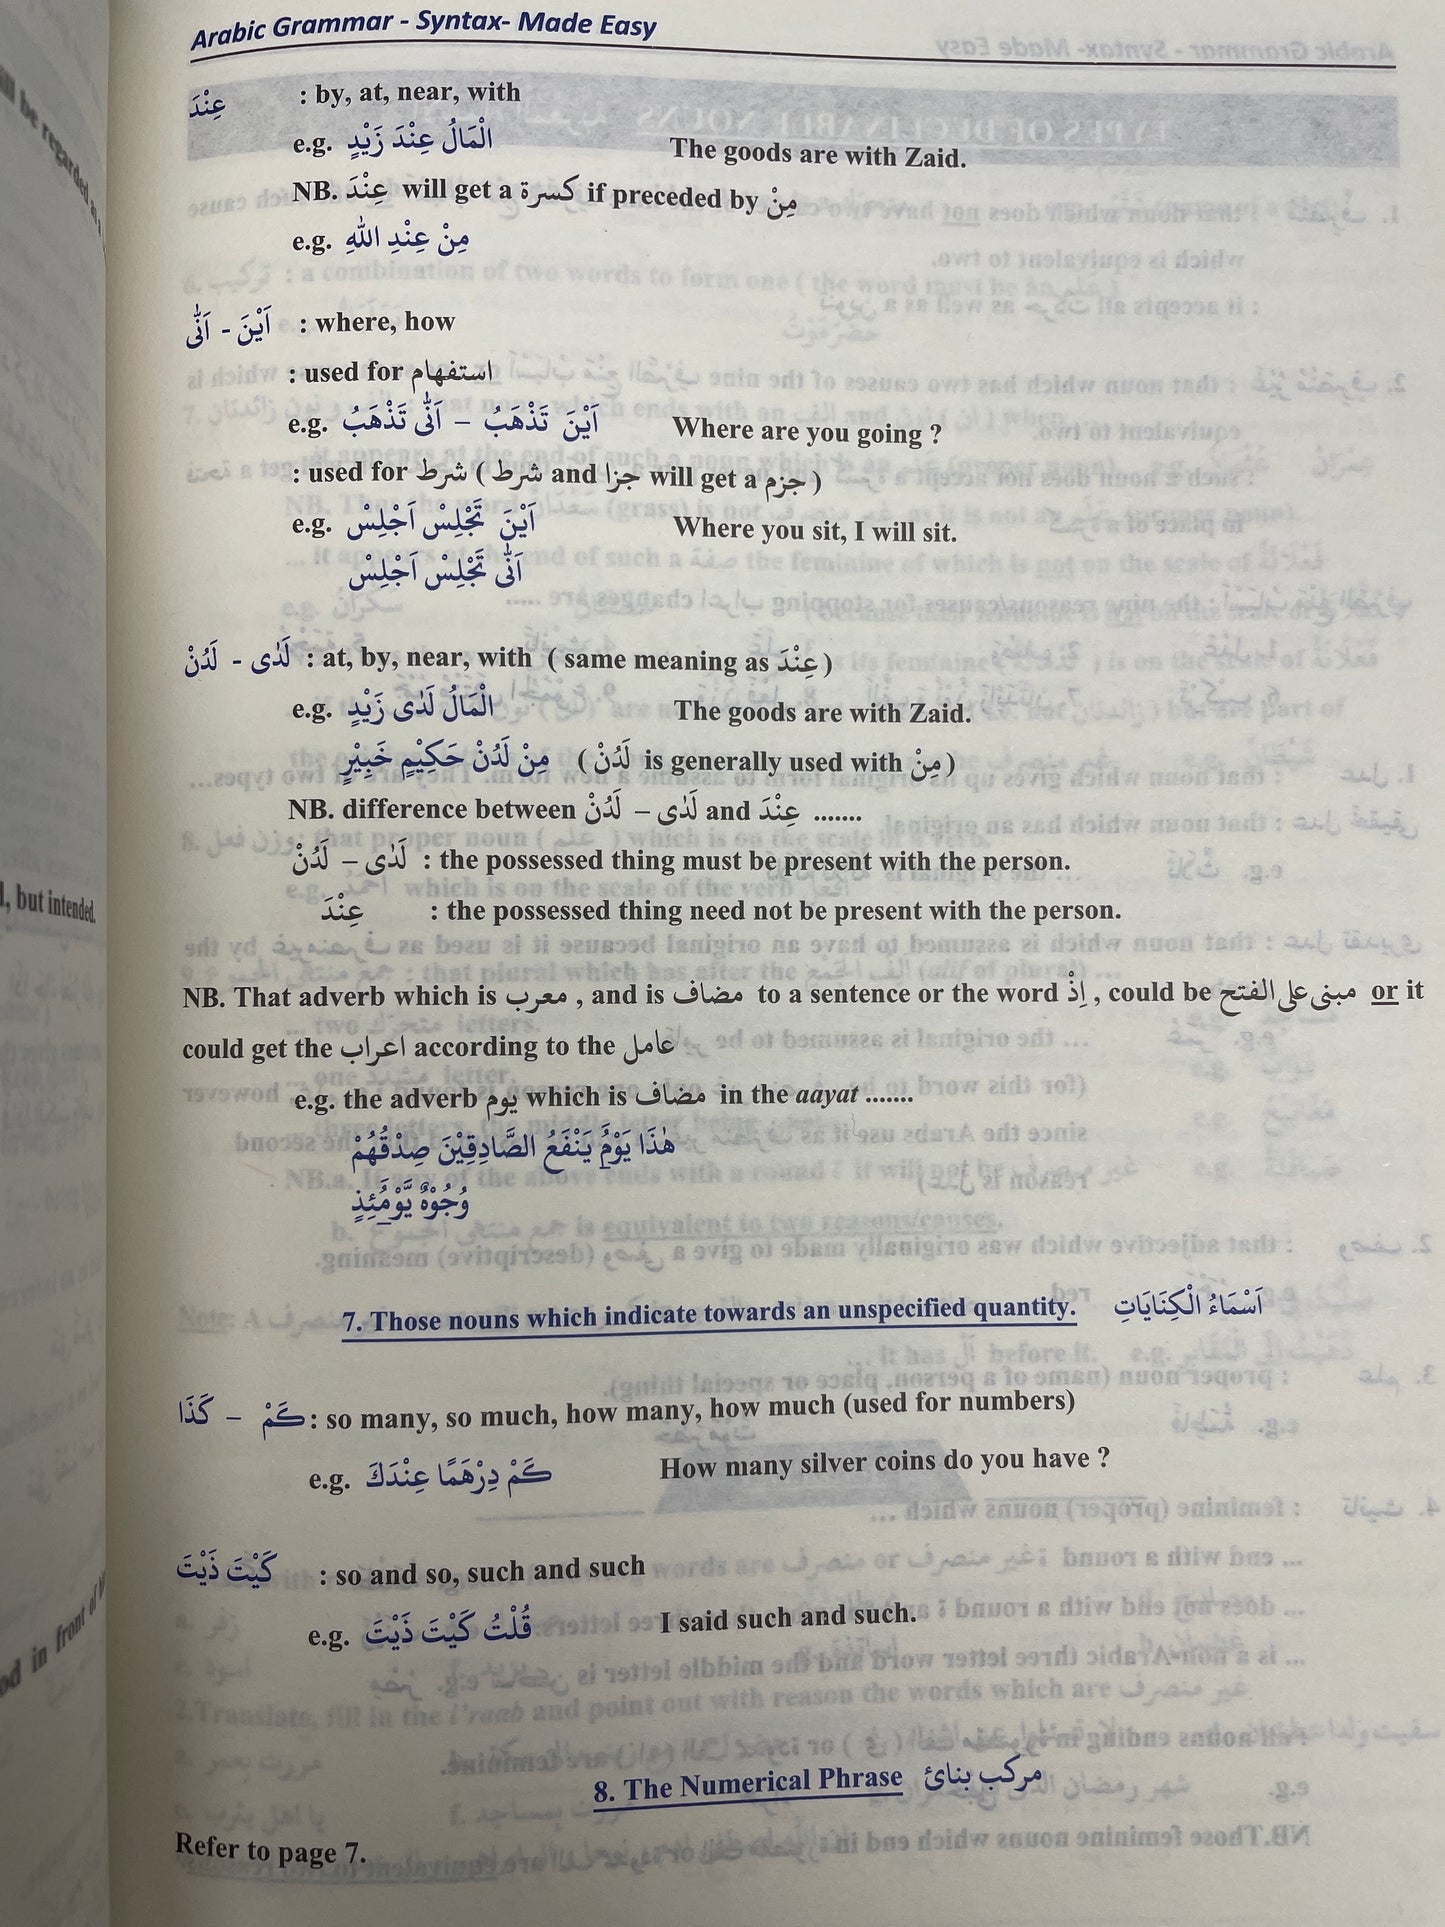 Arabic Grammar - Syntax- Made Easy
عِنْدَ : by, at, near, with
e.g. الْمَالُ عِنْدَ زَيْدٍ The goods are with Zaid.
NB. عِنْدَ will get a كسرة if preceded by مِنْ
e.g. مِنْ عِنْدِ اللّٰهِ
اَيْنَ - اَنّٰى : where, how
: used for استفهام
e.g. اَيْنَ تَذْهَبُ – اَنّٰى تَذْهَبُ Where are you going ?
: used for شرط ( شرط and جزا will get a جزم )
e.g. اَيْنَ تَجْلِسْ اَجْلِسْ Where you sit, I will sit.
اَنّٰى تَجْلِسْ اَجْلِسْ
لَدٰى - لَدُنْ : at, by, near, with ( same meaning as عِنْدَ )
e.g. الْمَالُ لَدٰى زَيْدٍ The goods are with Zaid.
مِنْ لَدُنْ حَكِيْمٍ خَبِيْرٍ ( لَدُنْ is generally used with مِنْ )
NB. difference between لَدٰى – لَدُنْ and عِنْدَ .......
لَدٰى – لَدُنْ : the possessed thing must be present with the person.
عِنْدَ : the possessed thing need not be present with the person.
NB. That adverb which is معرب , and is مضاف to a sentence or the word اِذْ , could be مبنى على الفتح or it
could get the اعراب according to the عامل
e.g. the adverb يوم which is مضاف in the aayat .......
هٰذَا يَوْمَُ يَنْفَعُ الصَّادِقِيْنَ صِدْقُهُمْ
وُجُوْهٌ يَّوْمَُئِذٍ
7. Those nouns which indicate towards an unspecified quantity. اَسْمَاءُ الْكِنَايَاتِ
كَمْ – كَذَا : so many, so much, how many, how much (used for numbers)
e.g. كَمْ دِرْهَمًا عِنْدَكَ How many silver coins do you have ?
كَيْتَ ذَيْتَ : so and so, such and such
e.g. قُلْتُ كَيْتَ ذَيْتَ I said such and such.
8. The Numerical Phrase مركب بنائ
Refer to page 7.